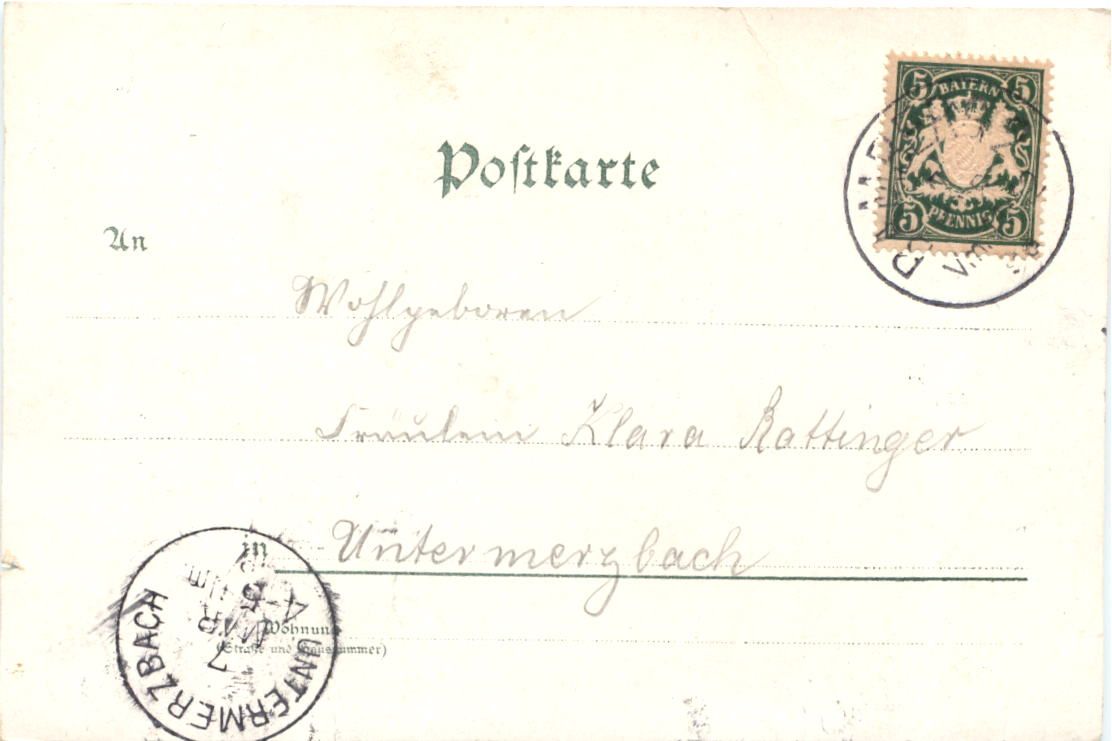 Postkarte
5 BAYERN 5
5 PFENNIG 5
An
Wohlgeboren
Fräulein Klara Rattinger
in Untermerzbach
Wohnung
(Straße und Hausnummer)
UNTERMERZBACH
7
MAR
4-5 Nm.